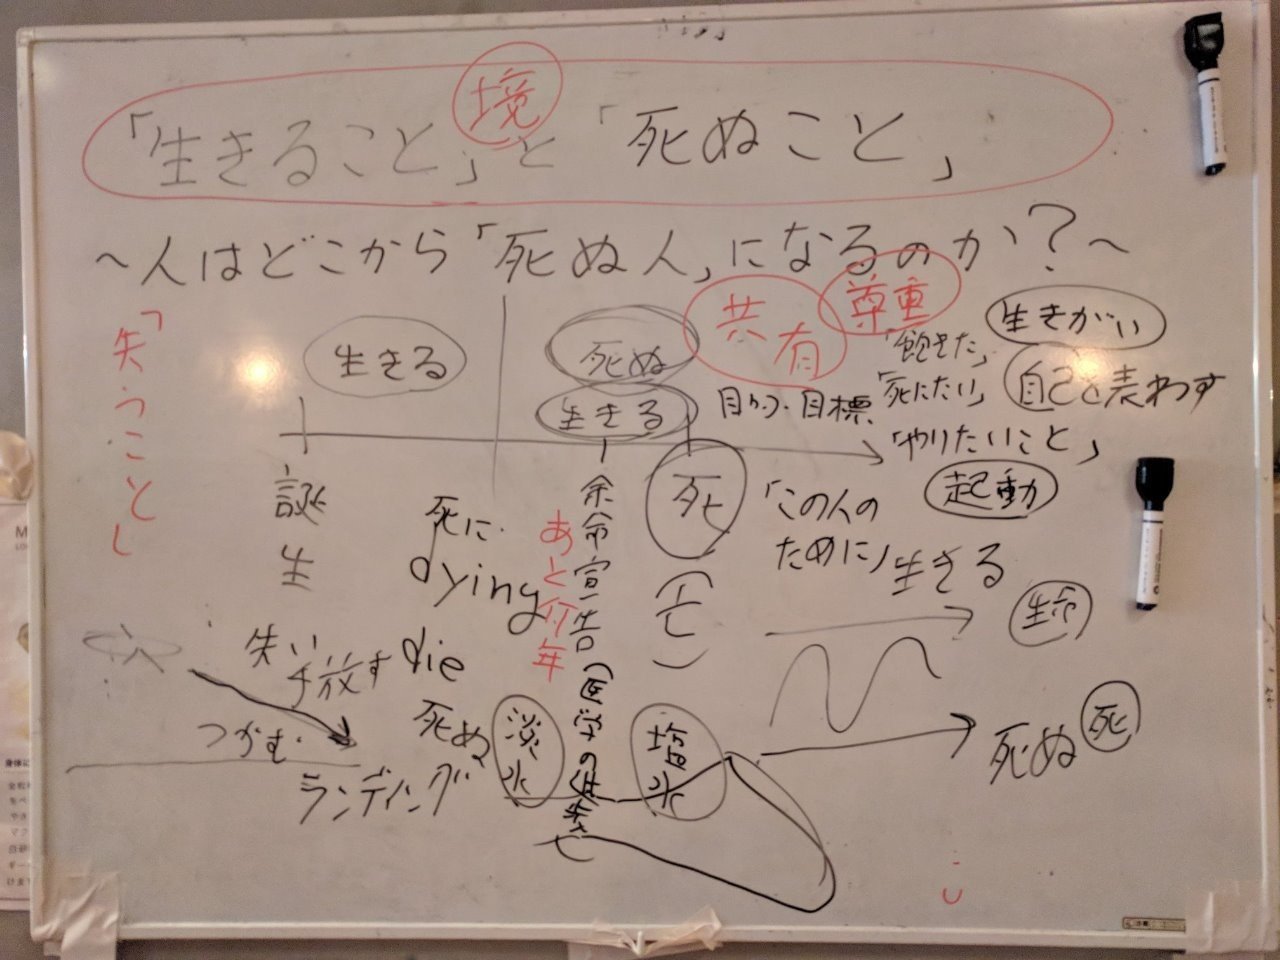 境
「生きること」と「死ぬこと」
～人はどこから「死ぬ人」になるのか？～
「失うこと」
生きる
死ぬ
生きる
共有
尊重
生きがい
「飽きた」
「死にたい」
自己を表わす
目的・目標
「やりたいこと」
起動
誕生
死
(亡)
余命宣告(医学の進歩で
あと何年
死に
dying
die
死ぬ
「この人の
ために」生きる
生命
失い
手放す
つかむ
ランディング
淡水
塩水
死ぬ
死